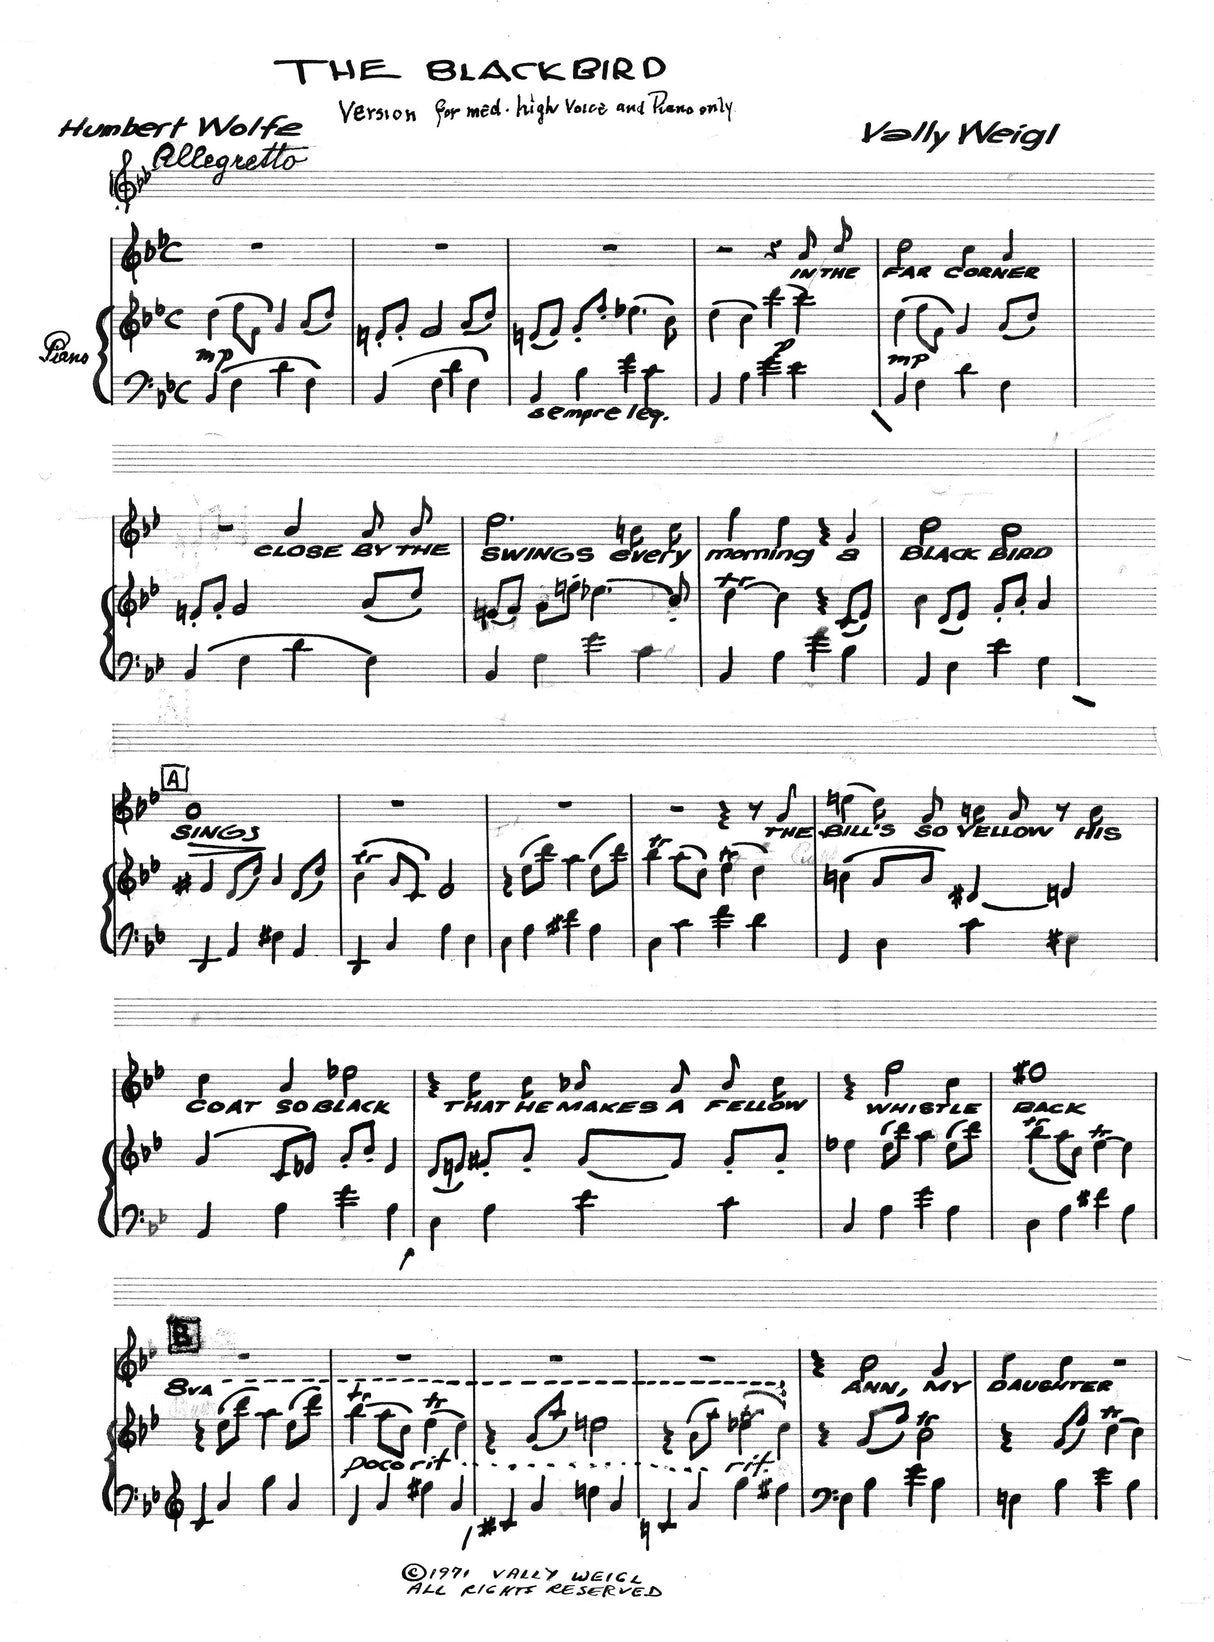 THE BLACKBIRD
Version for med. high Voice and Piano only
Humbert Wolfe
Vally Weigl
Allegretto
IN THE FAR CORNER
Piano
mp
p
mp
sempre leg.
CLOSE BY THE SWINGS every morning a BLACK BIRD
tr
A
SINGS THE BILL'S SO YELLOW HIS
tr tr tr
COAT SO BLACK THAT HE MAKES A FELLOW WHISTLE BACK
tr tr
B
8va
ANN, MY DAUGHTER
tr tr tr tr
poco rit. rit.
©1971 VALLY WEIGL
ALL RIGHTS RESERVED